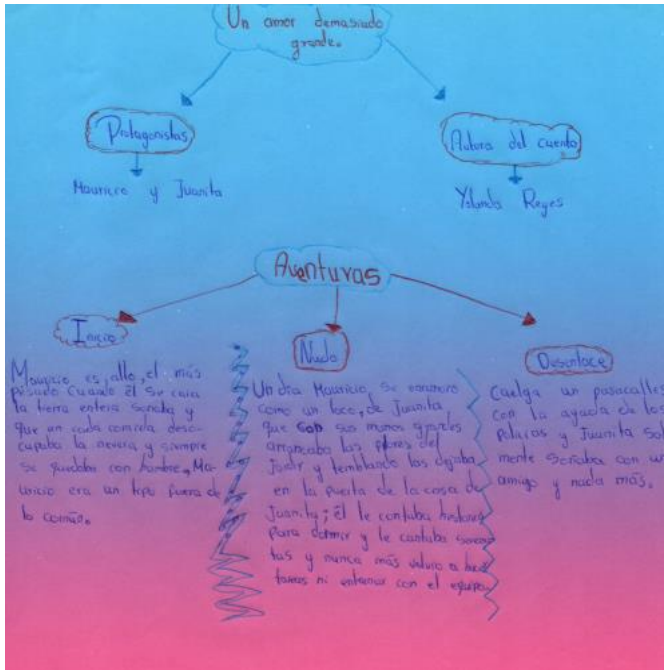 Un amor demasiado
grande.
Protagonistas
Autora del cuento
Mauricio y Juanita
Yolanda Reyes
Aventuras
Inicio
Mauricio es, alto, el más
pesado cuando él se caia
la tierra entera sonaba y
que en cada comida deso-
cupaba la nevera y siempre
se quedaba con hambre, Ma-
uricio era un tipo fuera de
lo común.
Nudo
Un dia Mauricio, se enamoro
como un loco, de Juanita
que con sus manos grandes
arrancaba las flores del
Jardir y temblando las dejaba
en la puerta de la casa de
Juanita; él le contaba historias
para dormir y le cantaba
tas y nunca más volvio a
tareas ni entrenar con el equipo.
Desenlace
Cuelga un pasacalles
con la ayuda de los
y Juanita Sola
mente Soñaba con un
amigo y nada más.